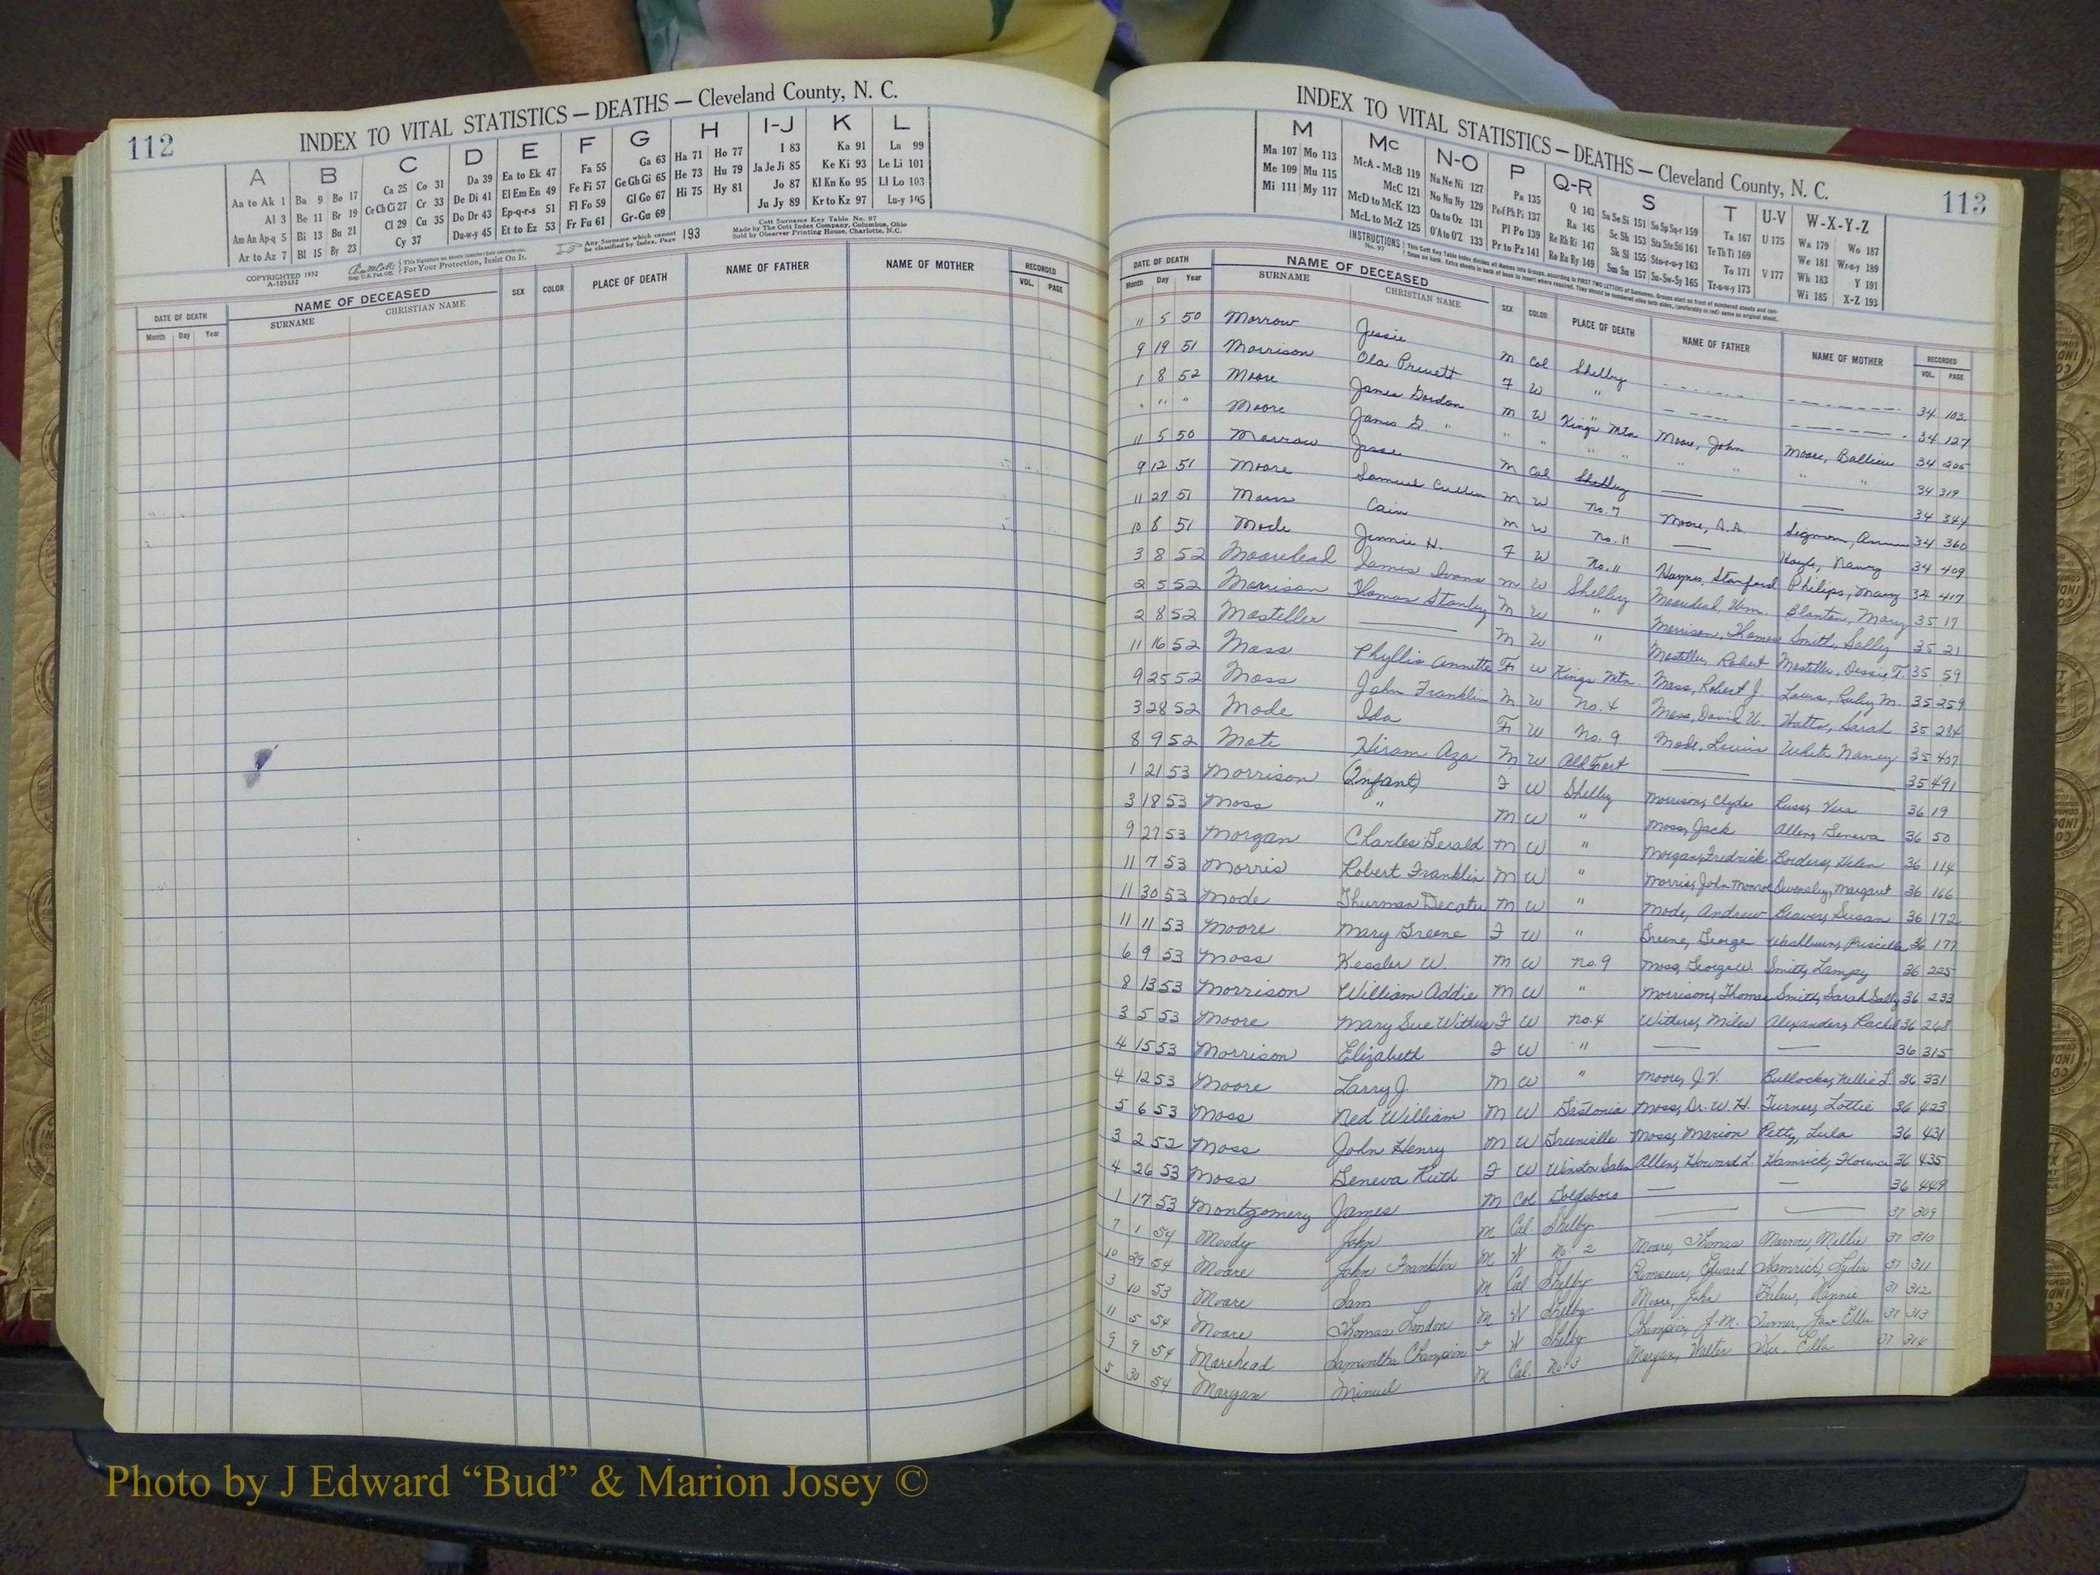 112
INDEX TO VITAL STATISTICS — DEATHS — Cleveland County, N. C.
A B C D E F G H I-J K L
Aa to Ak 1 Ba 9 Bo 17 Ca 25 Co 31 Da 39 Ea to Ek 47 Fa 55 Ga 63 Ha 71 Ho 77 I 83 Ka 91 La 99
Al 3 Be 11 Br 19 Ce Ch Ci 27 Cr 33 De Di 41 El Em En 49 Fe Fi 57 Ge Gh Gi 65 He 73 Hu 79 Ja Je Ji 85 Ke Ki 93 Le Li 101
Am An Ap-q 5 Bi 13 Bu 21 Cl 29 Cu 35 Do Dr 43 Ep-q-r-s 51 Fl Fo 59 Gl Go 67 Hi 75 Hy 81 Jo 87 Kl Kn Ko 95 Ll Lo 103
Ar to Az 7 Bl 15 By 23 Cy 37 Du-w-y 45 Et to Ez 53 Fr Fu 61 Gr-Gu 69 Ju Jy 89 Kr to Kz 97 Lu-y 105
COPYRIGHTED 1932
A-103652
This Signature on sheets
For Your Protection, Insist On It.
Any Surname which cannot be classified by Index, Page 193
Cott Surname Key Table No. 97
Made by The Cott Index Company, Columbus, Ohio
Sold by Observer Printing House, Charlotte, N.C.
DATE OF DEATH NAME OF DECEASED SEX COLOR PLACE OF DEATH NAME OF FATHER NAME OF MOTHER RECORDED
Month Day Year SURNAME CHRISTIAN NAME VOL. PAGE
113
INDEX TO VITAL STATISTICS — DEATHS — Cleveland County, N. C.
M Mc N-O P Q-R S T U-V W-X-Y-Z
Ma 107 Mo 113 McA - McB 119 Na Ne Ni 127 Pa 135 Q 143 Sa Se Si 151 So Sp Sq-r 159 Ta 167 U 175 Wa 179 Wo 187
Me 109 Mu 115 McC 121 No Nu Ny 129 Pe-f Ph Pi 137 Ra 145 Sc Sh 153 Sta Ste Sti 161 Te Th Ti 169 V 177 We 181 Wr-u-y 189
Mi 111 My 117 McD to McK 123 Oa to Oz 131 Pl Po 139 Re Rh Ri 147 Sk Sl 155 Sto-r-u-y 163 To 171 Wh 183 Y 191
McL to McZ 125 O'A to O'Z 133 Pr to Pz 141 Ro Ru Ry 149 Sm Sn 157 Su-Sw-Sy 165 Tr-u-w-y 173 Wi 185 X-Z 193
DATE OF DEATH NAME OF DECEASED SEX COLOR PLACE OF DEATH NAME OF FATHER NAME OF MOTHER RECORDED
Month Day Year SURNAME CHRISTIAN NAME VOL. PAGE
11 5 50 Morrow Jessie M Col Shelby 34 103
9 19 51 Morrison Ola Pruett F W " 34 127
1 8 52 Moore James Gordon M W Kings Mtn Moore, John Moore, 34 205
" " " Moore James G. " " " " " " " " " 34 319
11 5 50 Morrow Jesse M Col Shelby — — 34 344
9 12 51 Moore Samuel Cullen M W No. 7 Moore, A.A. Sigmon, Annie 34 360
11 27 51 Moss Cain M W No. 11 — Hoyle, Nancy 34 409
10 8 51 Mode Jennie H. F W No. 11 Haynes, Stanford Philips, Mary 34 417
3 8 52 Moorehead James Ivons M W Shelby Moorehead, Wm. Blanton, Mary 35 17
2 5 52 Morrison Thomas Stanley M W " Morrison, Thomas Smith, Sally 35 21
2 8 52 Mosteller — M W " Mosteller, Robert Mosteller, Dessie T. 35 59
11 16 52 Moss Phyllis Annette F W Kings Mtn. Moss, Robert J. Laws, Ruby M. 35 259
9 25 52 Moss John Franklin M W No. 4 Moss, David Watts, Sarah 35 284
3 28 52 Mode Ida F W No. 9 Mode, Lewis White Nancy 35 407
8 9 52 Mote Hiram Aza M W Old Fort — — 35 491
1 21 53 Morrison (Infant) F W Shelby Morrison, Clyde Russ, Vera 36 19
3 18 53 Moss " M W " Moss, Jack Allen, Geneva 36 50
9 27 53 Morgan Charles Gerald M W " Morgan, Fredrick Borders, Helen 36 114
11 7 53 Morris Robert Franklin M W " Morris, John Monroe Margaret 36 166
11 30 53 Mode Thurman Decatu M W " Mode, Andrew Beaver, Susan 36 172
11 11 53 Moore Mary Greene F W " Greene, George Washburn, Priscilla 36 177
6 9 53 Moss Kessler W. M W No. 9 Moss, George W. Smith, Lampy 36 225
8 13 53 Morrison William Addie M W " Morrison, Thomas Smith, Sarah Sally 36 233
3 5 53 Moore Mary Sue Withers F W No. 4 Withers, Miles Alexander, Rachel 36 268
4 15 53 Morrison Elizabeth F W " — — 36 315
4 12 53 Moore Larry J. M W " Moore, J.V. Bullocks, Nellie L. 36 331
5 6 53 Moss Ned William M W Gastonia Moss, Dr. W. H. Turner, Lottie 36 423
3 2 53 Moss John Henry M W Greenville Moss, Marion Petty, Lula 36 431
4 26 53 Moss Geneva Ruth F W Winston Salem Allen, Howard L. Hamrick, Florence 36 435
1 17 53 Montgomery James M Col Goldsboro — — 36 449
7 1 54 Moody John M Col Shelby — — 37 309
10 29 54 Moore John Franklin M W No 2 Moore, Thomas Morrow, Mellie 37 310
3 10 53 Moore Sam M Col. Shelby Ramseur, Edward Hamrick, Lydia 37 311
11 5 54 Moore Thomas London M W Shelby Moore, John Nannie 37 312
9 9 54 Morehead Samantha Champion F W Shelby Champion, J.M. Turner, Fair Ellen 37 313
5 30 54 Morgan Minuel M Col. No 3 Morgan, Walter Ella 37 314
Photo by J Edward “Bud” & Marion Josey ©